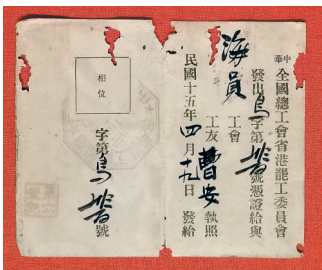 中華全國總工會省港罷工委員會
發出 字第 號憑證給與
海員 工會
工友 曹安 執照
民國十五年四月 日 發給
相位
字第 號